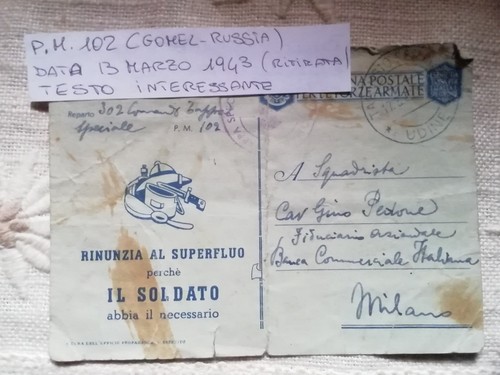 P.M. 102 (GOMEL-RUSSIA)
DATA 13 MARZO 1943 (RITIRATA)
TESTO INTERESSANTE
NA POSTALE
PER LE FORZE ARMATE
UDINE
Reparto 302
Speciale P. M. 102
A Squadrista
Cav Gino Pedone
Fiduciario aziendale
Banca Commerciale Italiana
Milano
RINUNZIA AL SUPERFLUO
perchè
IL SOLDATO
abbia il necessario